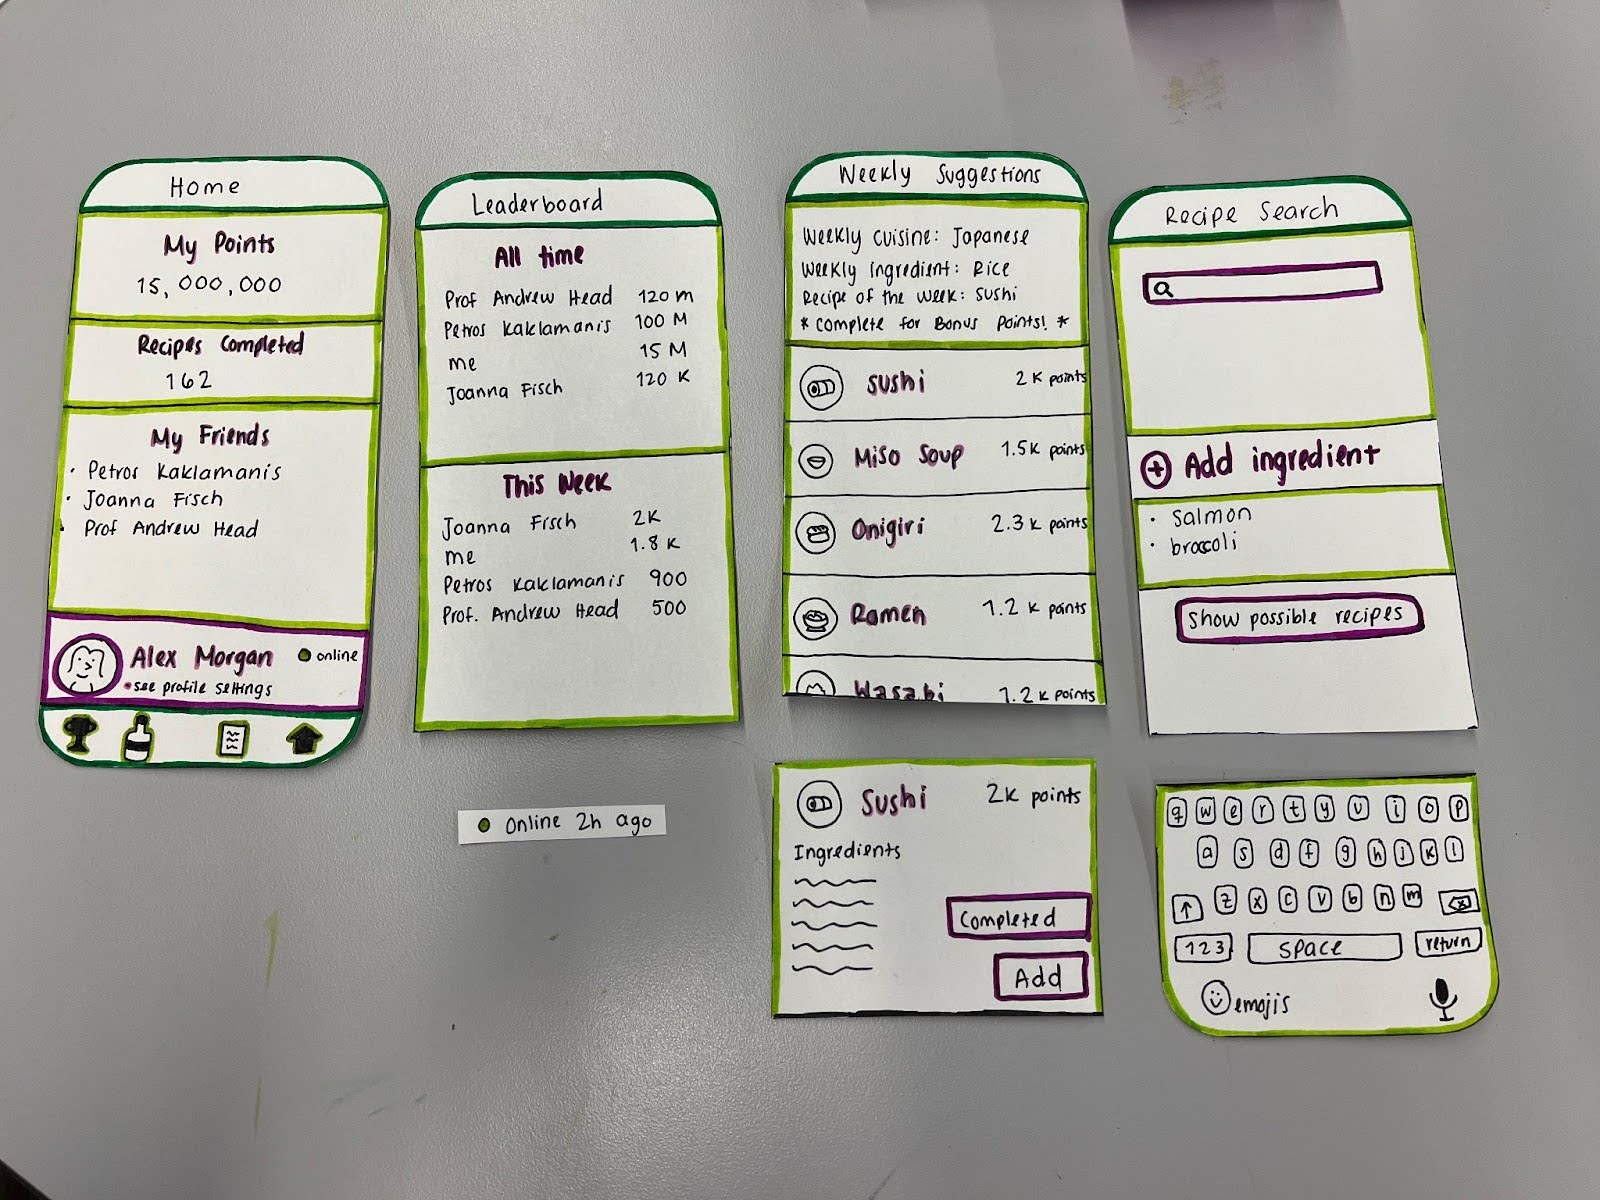 Home
My Points
15,000,000
Recipes Completed
162
My Friends
• Petros Kaklamanis
• Joanna Fisch
• Prof Andrew Head
Alex Morgan
online
•see profile settings
Leaderboard
All time
Prof Andrew Head 120 m
Petros Kaklamanis 100 M
me 15 M
Joanna Fisch 120 K
This Week
Joanna Fisch 2K
me 1.8 K
Petros Kaklamanis 900
Prof. Andrew Head 500
Online 2h ago
Weekly Suggestions
Weekly Cuisine: Japanese
Weekly ingredient: Rice
Recipe of the week: Sushi
* Complete for Bonus Points! *
Sushi 2K points
Miso Soup 1.5K points
Onigiri 2.3K points
Ramen 1.2K points
Wasabi 1.2K points
Sushi 2K points
Ingredients
Completed
Add
Recipe Search
Add ingredient
• Salmon
• broccoli
Show possible recipes
q w e r t y u i o p
a s d f g h j k l
z x c v b n m
123 space return
emojis